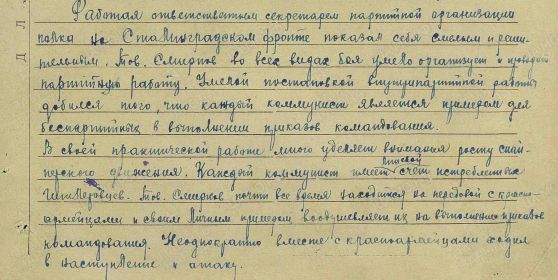 Работая ответственным секретарем партийной организации
полка на Сталинградском фронте показал себя смелым и реши-
тельным. Тов. Смирнов во всех видах боя умело организует и проводит
партийную работу. Умелой постановкой внутрипартийной работы
добился того, что каждый коммунист является примером для
беспартийных в выполнении приказов командования.
В своей практической работе много уделяет внимания росту снай-
перского движения. Каждый коммунист имеет счет истребленных
гитлеровцев. Тов. Смирнов почти все время находится на передовой с красно-
армейцами и своим личным примером воодушевляет их на выполнение приказов
командования. Неоднократно вместе с красноармейцами ходил
в наступление и атаку.